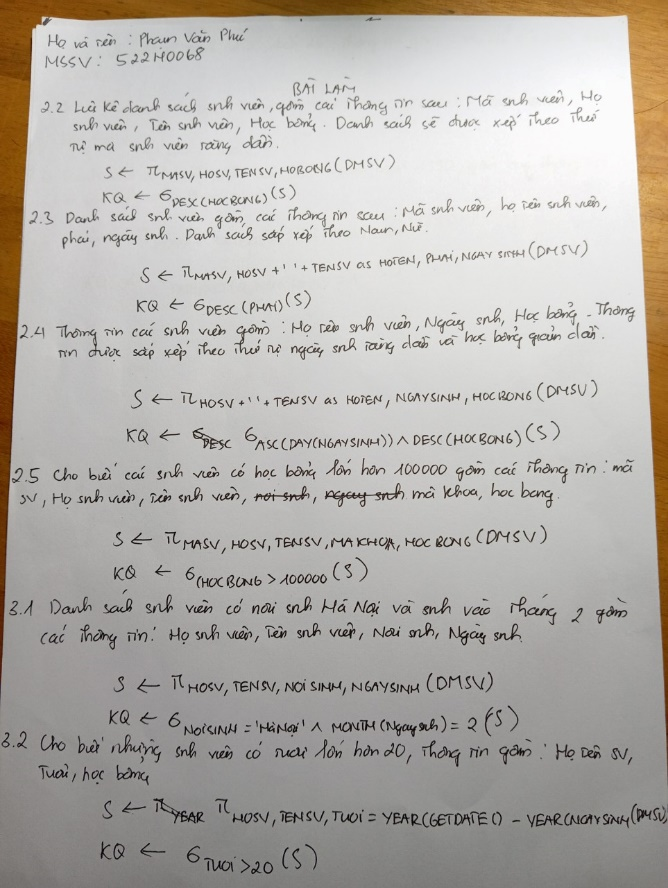 Họ và tên : Phạm Văn Phú
MSSV : 522H0068
BÀI LÀM
2.2 Liệt kê danh sách sinh viên, gồm các thông tin sau : Mã sinh viên, Họ
sinh viên, Tên sinh viên, Học bổng. Danh sách sẽ được xếp theo thứ
tự mã sinh viên tăng dần.
S ← π MASV, HOSV, TENSV, HOBONG (DMSV)
KQ ← σ DESC(HOCBONG) (S)
2.3 Danh sách sinh viên gồm các thông tin sau : Mã sinh viên, họ tên sinh viên,
phái, ngày sinh. Danh sách sắp xếp theo Nam, Nữ.
S ← π MASV, HOSV + ' ' + TENSV as HOTEN, PHAI, NGAY SINH (DMSV)
KQ ← σ DESC(PHAI) (S)
2.4 Thông tin các sinh viên gồm : Họ tên sinh viên, Ngày sinh, Học bổng. Thông
tin được sắp xếp theo thứ tự ngày sinh tăng dần và học bổng giảm dần.
S ← π HOSV + ' ' + TENSV as HOTEN, NGAYSINH, HOCBONG (DMSV)
KQ ← σ DESC σ ASC(DAY(NGAYSINH)) ∧ DESC(HOCBONG) (S)
2.5 Cho biết các sinh viên có học bổng lớn hơn 100000 gồm các thông tin : mã
SV, Họ sinh viên, tên sinh viên, nơi sinh, ngay sinh mã khoa, học bong.
S ← π MASV, HOSV, TENSV, MAKHOA, HOCBONG (DMSV)
KQ ← σ (HOCBONG > 100000 (S)
3.1 Danh sách sinh viên có nơi sinh Hà Nội và sinh vào tháng 2 gồm
các thông tin : Họ sinh viên, Tên sinh viên, Nơi sinh, Ngày sinh.
S ← π HOSV, TENSV, NOI SINH, NGAYSINH (DMSV)
KQ ← σ NOISINH = 'Hà Nội' ∧ MONTH(Ngaysinh) = 2 (S)
3.2 Cho biết những sinh viên có tuổi lớn hơn 20, thông tin gồm : Họ tên SV,
Tuổi, học bổng
S ← π YEAR π HOSV, TENSV, TUOI = YEAR(GETDATE()) - YEAR(NGAYSINH) (DMSV)
KQ ← σ TUOI > 20 (S)